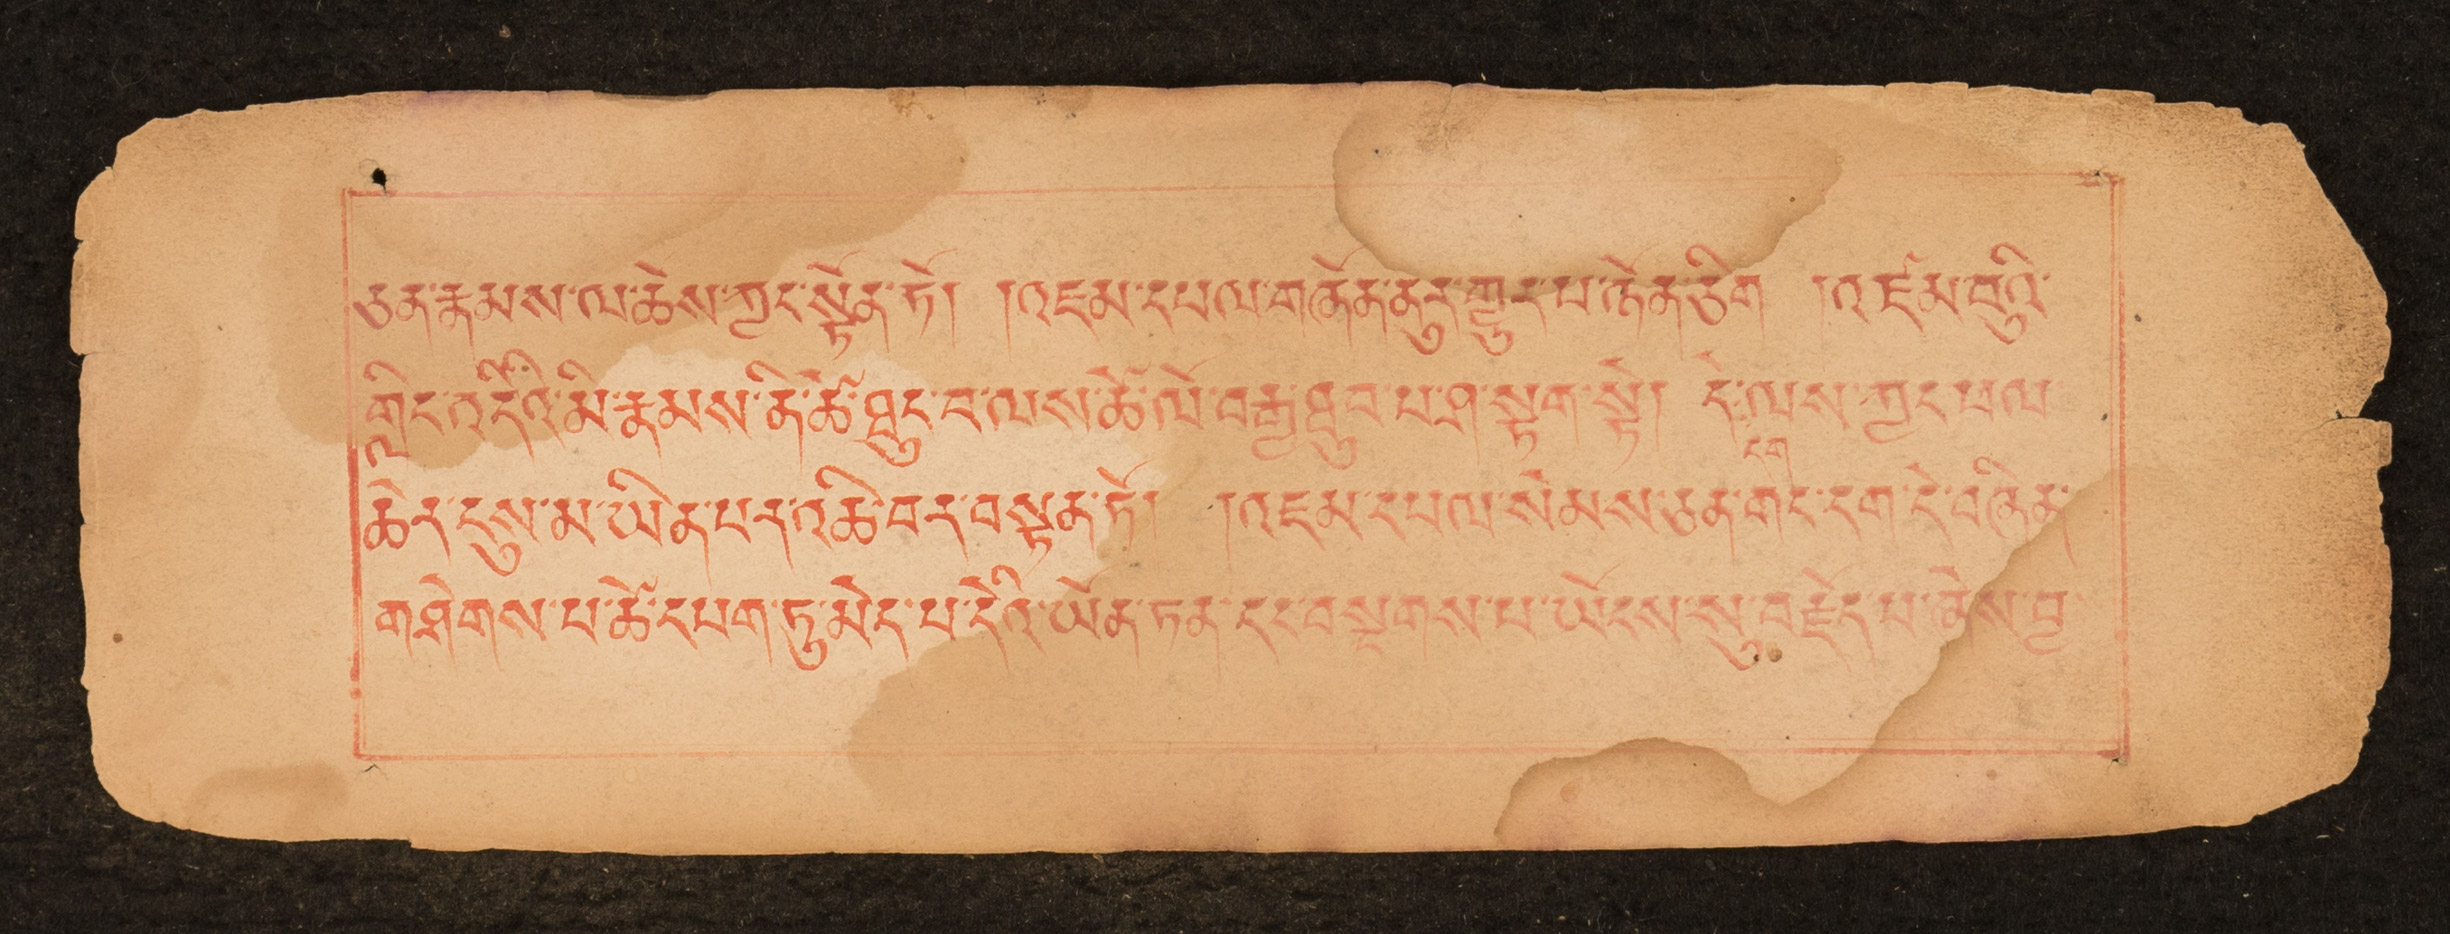 ཅན་རྣམས་ལ་ཆོས་ཀྱང་སྟོན་ཏོ། །འཇམ་དཔལ་གཞོན་ནུར་གྱུར་པ་ཉོན་ཅིག །འཇོམ་བུའི་
གླིང་འདིའི་མི་རྣམས་ནི་ཚེ་ཐུང་བ་ལས་ཚེ་ལོ་བརྒྱ་ཐུབ་པ་ཤ་སྟག་སྟེ། དེ་ལས་ཀྱང་ཕལ་
ཆེར་དུསུ་མ་ཡིན་པར་འཆི་བར་བསྟན་ཏོ། །འཇམ་དཔལ་སེམས་ཅན་གང་དག་དེ་བཞིན་
ངག
གཤེགས་པ་ཚེ་དཔག་ཏུ་མེད་པ་དེའི་ཡོན་ཏན་དང་བསྔགས་པ་ཡོངས་སུ་བརྗོད་པ་ཞེས་བྱ་